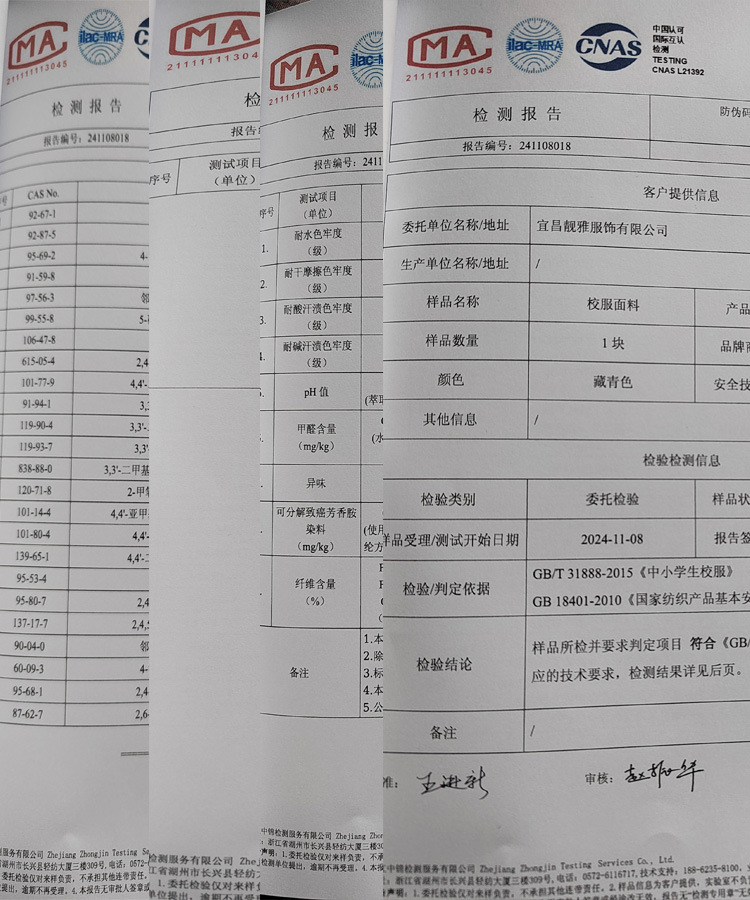 MA
ilac-MRA
211111113045
检测报告
报告编号：241108018
CAS No.
92-67-1
92-87-5
95-69-2
4-
91-59-8
97-56-3
邻
99-55-8
5-
106-47-8
615-05-4
2,4
101-77-9
4,4'-
91-94-1
3,3
119-90-4
3,3'-
119-93-7
3,3'
838-88-0
3,3'-二甲基
120-71-8
2-甲
101-14-4
4,4'-亚甲
101-80-4
4,4'-
139-65-1
4,4'-
95-53-4
95-80-7
2,4
137-17-7
2,4,
90-04-0
邻
60-09-3
4-
95-68-1
2,4
87-62-7
2,6
服务有限公司 Zhejiang Zhongjin Testing Se
省湖州市长兴县轻纺大厦三楼309号, 电话: 0572-
1.委托检验仅对来样负责，不承担其他连带责任。
提出，逾期不再受理。4.本报告无审批人签章或
MA
211111113045
检
报告
序号
测试项目
（单位）
检测服务有限公司 Zhejiang Zhongjin
江省湖州市长兴县轻纺大厦三楼309
1.委托检验仅对来样负责，
单位提出，逾期不再受理
MA
ilac-MRA
211111113045
检测报
报告编号：2411
序号
测试项目
（单位）
1.
耐水色牢度
（级）
2.
耐干摩擦色牢度
（级）
3.
耐酸汗渍色牢度
（级）
4.
耐碱汗渍色牢度
（级）
pH 值
(萃取
甲醛含量
（mg/kg）
(水
异味
可分解致癌芳香胺
染料
（mg/kg）
(使用
纶方
纤维含量
（%）
备注
1.本
2.除
3.标
4.本
5.公
中锦检测服务有限公司 Zhejiang Zho
：浙江省湖州市长兴县轻纺大厦三楼
声明：1.委托检验仅对来样负责，不承
检测单位提出，逾期不再受理。4.本
MA
ilac-MRA
CNAS
中国认可
国际互认
检测
TESTING
CNAS L21392
211111113045
检测报告
防伪码
报告编号：241108018
客户提供信息
委托单位名称/地址
宜昌靓雅服饰有限公司
生产单位名称/地址
/
样品名称
校服面料
产品
样品数量
1 块
品牌商
颜色
藏青色
安全技
其他信息
/
检验检测信息
检验类别
委托检验
样品状
样品受理/测试开始日期
2024-11-08
报告签
检验/判定依据
GB/T 31888-2015《中小学生校服》
GB 18401-2010《国家纺织产品基本安
检验结论
样品所检并要求判定项目 符合《GB/
应的技术要求，检测结果详见后页。
备注
/
准：
王进新
审核：
中锦检测服务有限公司 Zhejiang Zhongjin Testing Services Co., Ltd.
：浙江省湖州市长兴县轻纺大厦三楼309号, 电话: 0572-6116717, 技术支持: 188-6235-8100,
声明：1.委托检验仅对来样负责，不承担其他连带责任。2.样品信息为客户提供，实验室不负